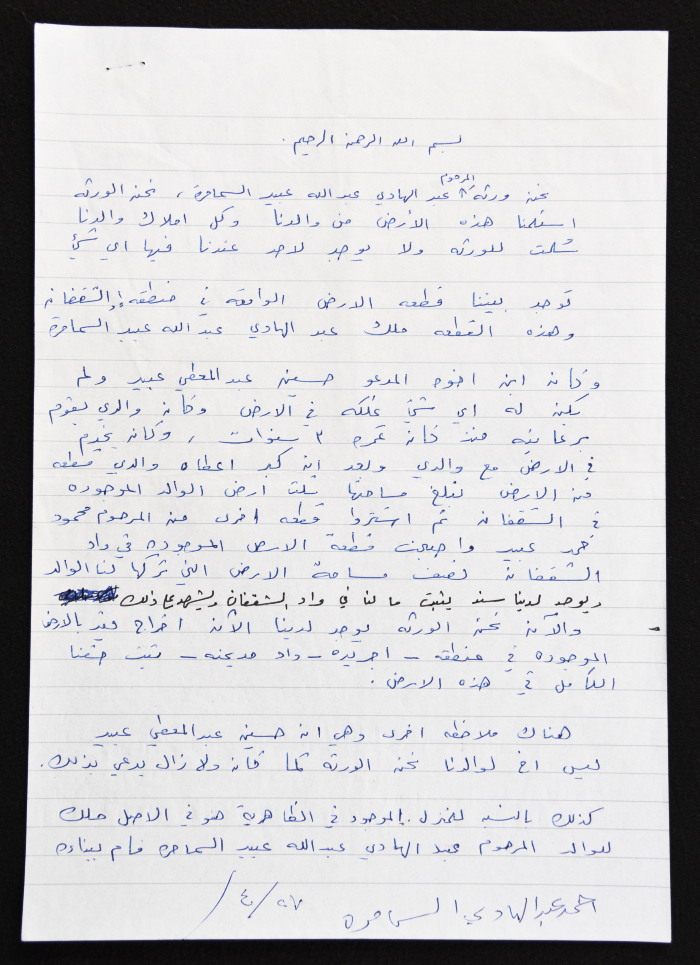 بسم الله الرحمن الرحيم .
نحن ورثة المرحوم عبد الهادي عبد الله عبيد السمامرة ، نحن الورثه
استلمنا هذه الأرض من والدنا وكل املاك والدنا
سُلمت للورثه ولا يوجد لاحد عندنا فيها اي شيئ
توجد بيننا قطعه الارض الواقعه في منطقه الشقفان
وهذه القطعه ملك عبد الهادي عبد الله عبيد السمامرة
وكان ابن اخوه المدعو حسين عبد المعطي عبيد ولم
يكن له اي شيئ يملكه في الارض وكان والدي يقوم
برعايته منذ كان عمره ٣ سنوات ، وكان يخدم
في الارض مع والدي وبعد ان كبر اعطاه والدي قطعه
من الارض تبلغ مساحتها ثلث ارض الوالد الموجوده
في الشقفان ثم اشتروا قطعه اخرى من المرحوم محمود
حمد عبيد واصبحت قطعة الارض الموجوده في واد
الشقفان نصف مساحة الارض التي تركها لنا الوالد
ويوجد لدينا سند يثبت ما لنا في واد الشقفان ويشهد على ذلك
والآن نحن الورثه يوجد لدينا الآن اخراج قيد بالارض
الموجوده في منطقه - اجريده - واد مديحنه - تثبت حقنا
الكامل في هذه الارض .
هناك ملاحظه اخرى وهي ان حسين عبد المعطي عبيد
ليس اخ لوالدنا نحن الورثه كما كان ولا زال يدعي بذلك .
كذلك بالنسبه للمنزل الموجود في الظاهرية هو في الاصل ملك
للوالد المرحوم عبد الهادي عبد الله عبيد السمامره قام ببناءه
احمد عبد الهادي السمامره ٢٧/٤/